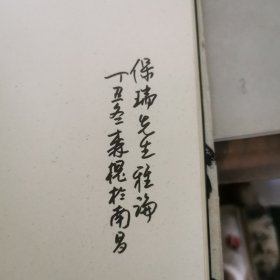 保瑞先生雅論
丁丑冬森槐於南昌